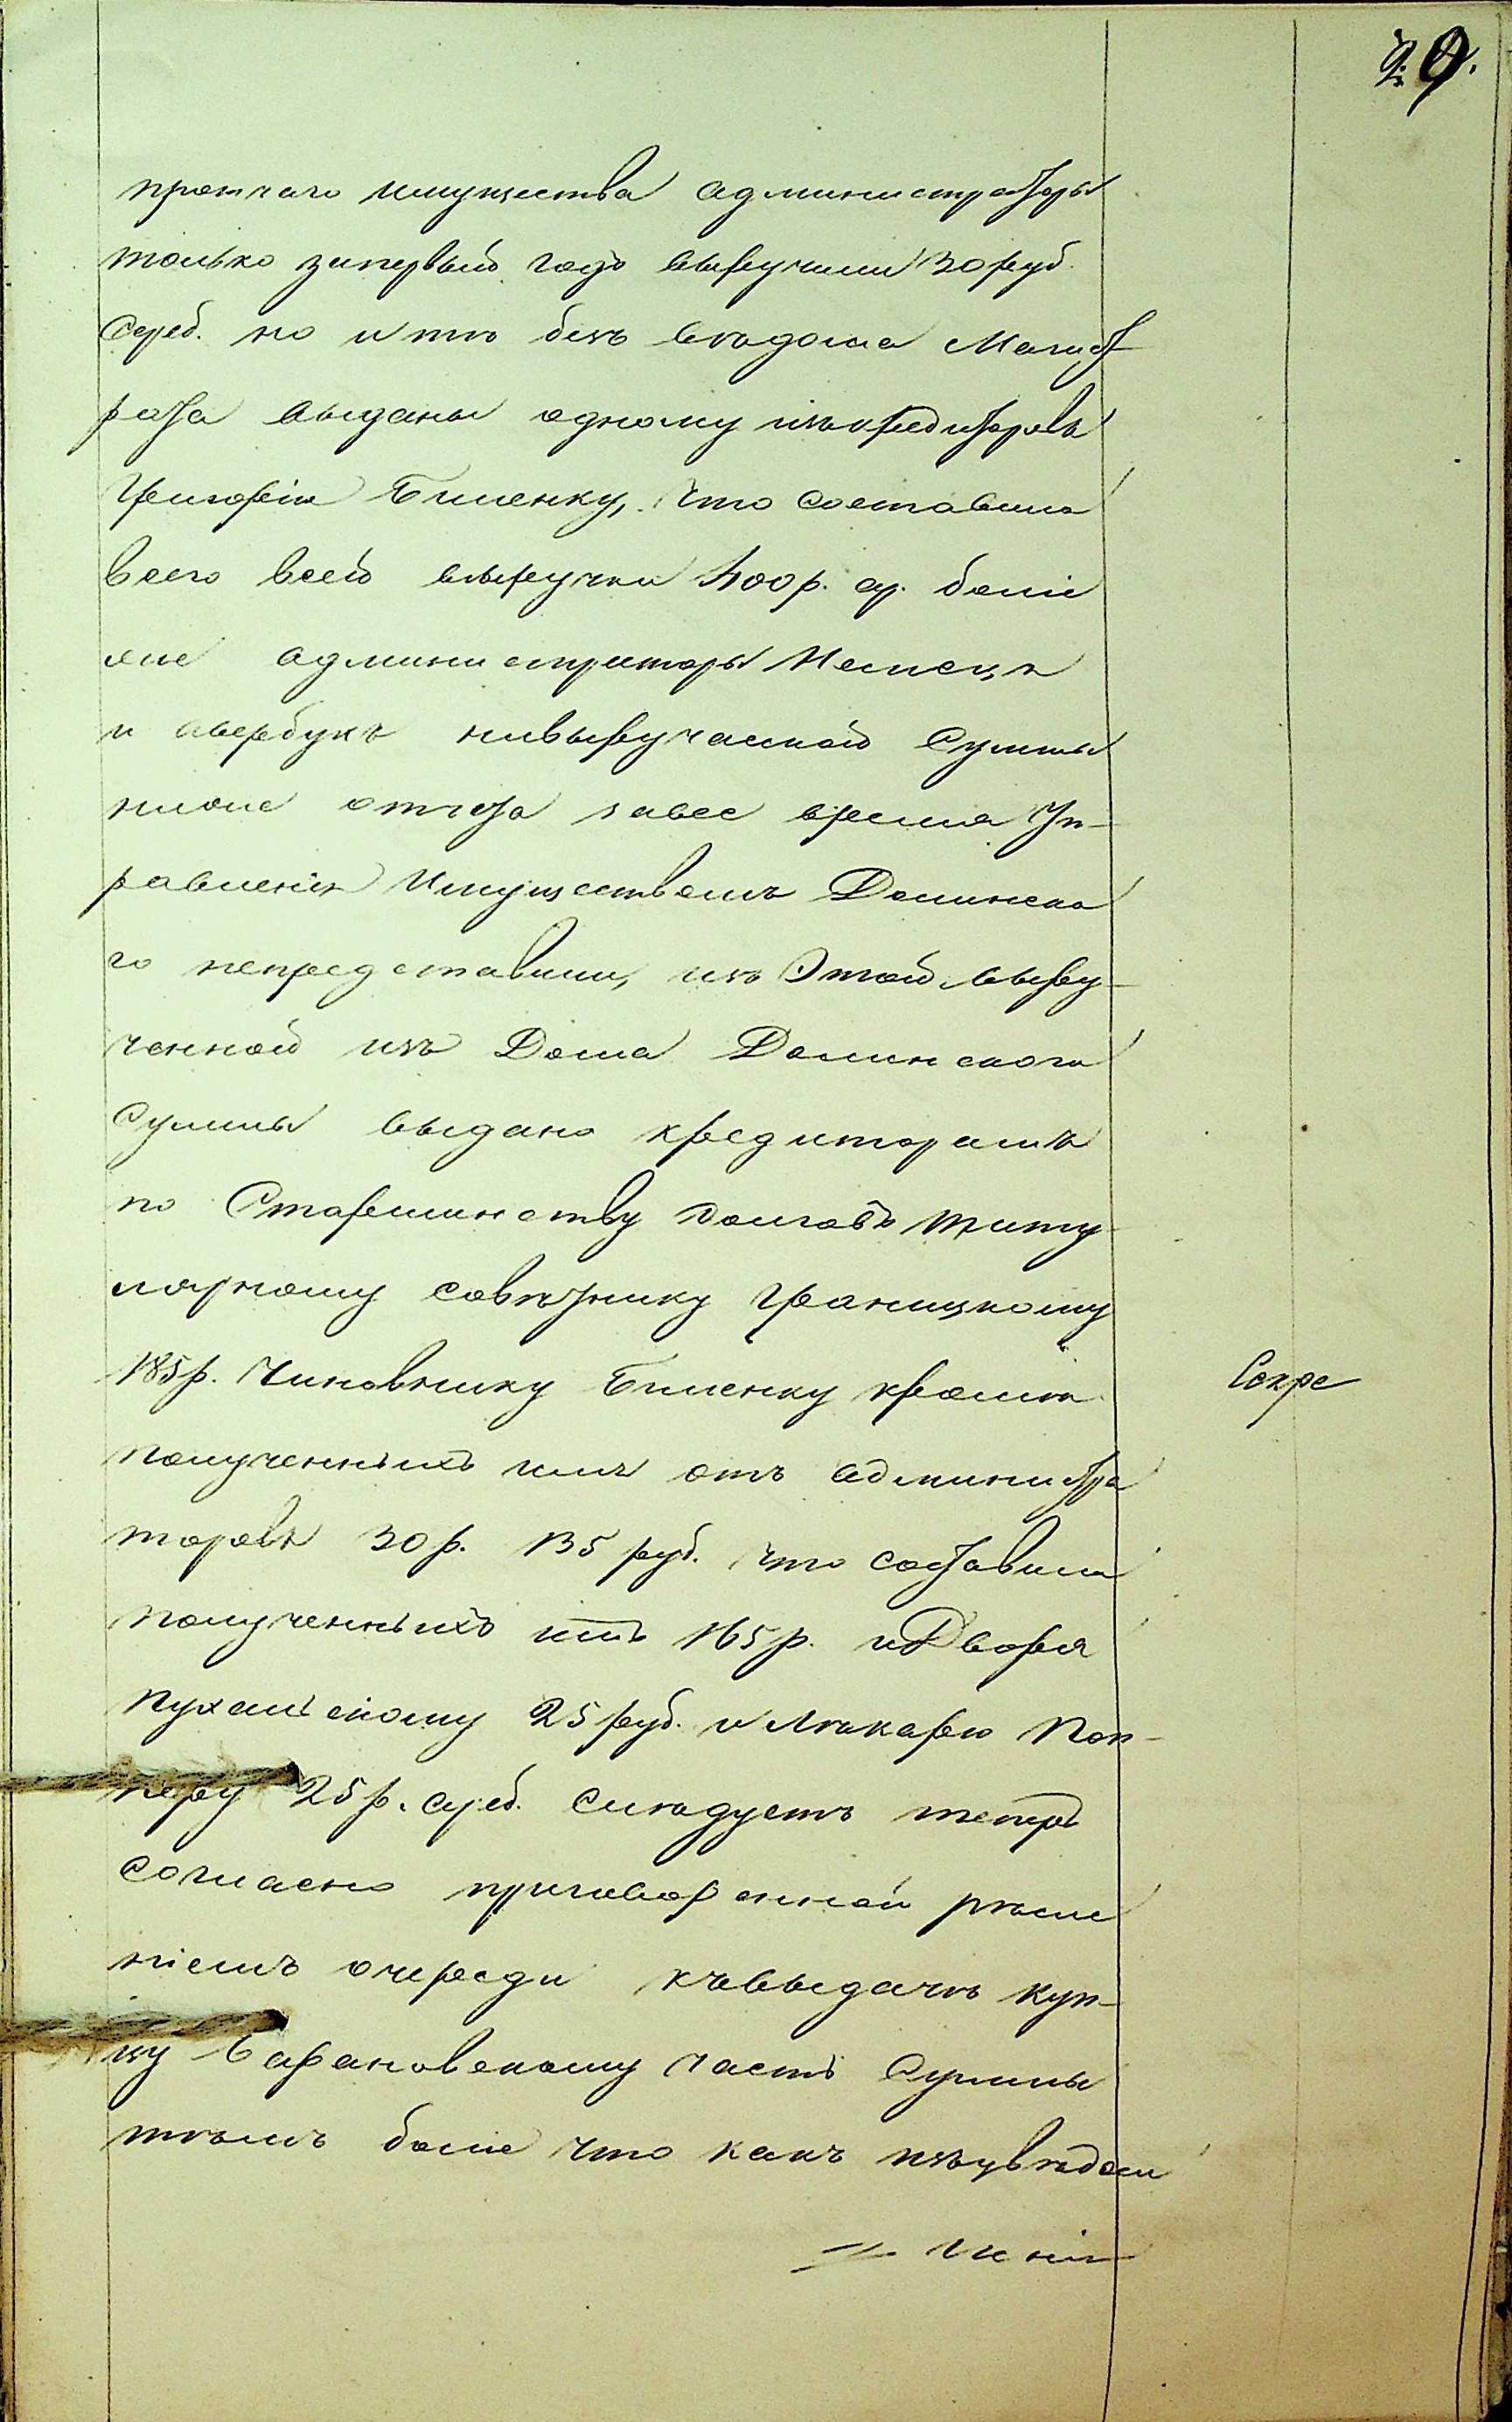 29.
протчаго имущества администраторы
только запервый годъ выручили 30 руб.
Сереб. но и тѣ безъ вѣдома Магист
рата выданы одному изъ кредиторовъ
Григорію Биленку, что составило
всего всей выручки 400 р. ср. боліе
же администраторы Немецъ
и Авербухъ нивырученной Суммы
ниже отчета завсе время Уп-
равленія Имуществомъ Долинска
го непредставили, изъ Этой выру-
ченной изъ Дома Долинского
Суммы выдано кредиторамъ
по Старшинству долговъ титу-
лярному совѣтнику Границкому
185 р. Чиновнику Биленку кромѣ
полученныхъ имъ отъ администра
торовъ 30 р. 135 руб. что составило
полученныхъ имъ 165 р. и Дворя
Пухальскому 25 руб. и лѣкарю Поп-
перу 25 р. сереб. Слѣдуетъ теперь
согласно приговоренной рѣше
ніемъ очереди къ выдачѣ куп-
цу Барановскому часть Суммы
тѣмъ боліе что какъ изъ увѣдом
Секре
ленія